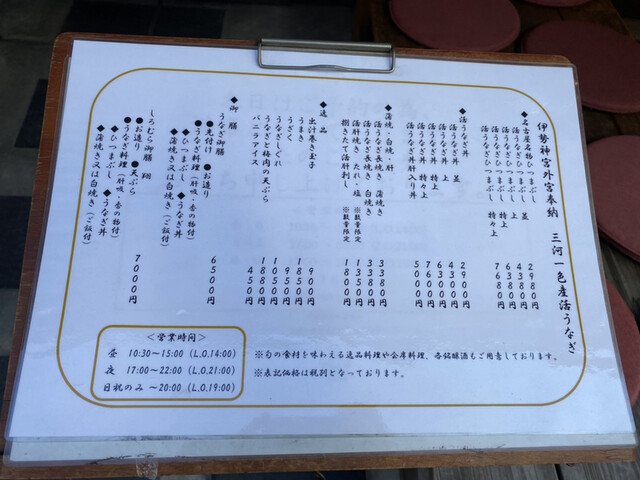 伊勢神宮外宮奉納 三河一色産活うなぎ
◆名古屋名物ひつまぶし
活うなぎひつまぶし 並 2980円
活うなぎひつまぶし 上 4380円
活うなぎひつまぶし 特上 6380円
活うなぎひつまぶし 特々上 7680円
◆活うなぎ丼
活うなぎ丼 並 2900円
活うなぎ丼 上 4300円
活うなぎ丼 特上 6300円
活うなぎ丼 特々上 7600円
活うなぎ丼 肝入り丼 5000円
◆蒲焼・白焼・肝
活うなぎ長焼き 蒲焼き 3380円
活うなぎ長焼き 白焼き 3380円
活肝焼き・たれ・塩 ※数量限定 1350円
捌きたて活肝刺し ※数量限定 1800円
◆逸品
出汁巻き玉子 900円
うまき 1850円
うざく 950円
うなぎしぐれ 1050円
うなぎと梅肉の天ぷら 1880円
バニラアイス 450円
◆御膳
うなぎ御膳 6500円
●先付け ●お造り
●うなぎ料理(肝吸・香の物付)
◆ひつまぶし ◆うなぎ丼
◆蒲焼き又は白焼き(ご飯付)
しろむら御膳 翔 7000円
●お造り ●天ぷら
●うなぎ料理(肝吸・香の物付)
◆ひつまぶし ◆うなぎ丼
◆蒲焼き又は白焼き(ご飯付)
※旬の食材を味わえる逸品料理や会席料理、各銘醸酒もご用意しております。
※表記価格は税別となっております。
<営業時間>
昼 10:30~15:00(L.O.14:00)
夜 17:00~22:00(L.O.21:00)
日祝のみ ~20:00(L.O.19:00)